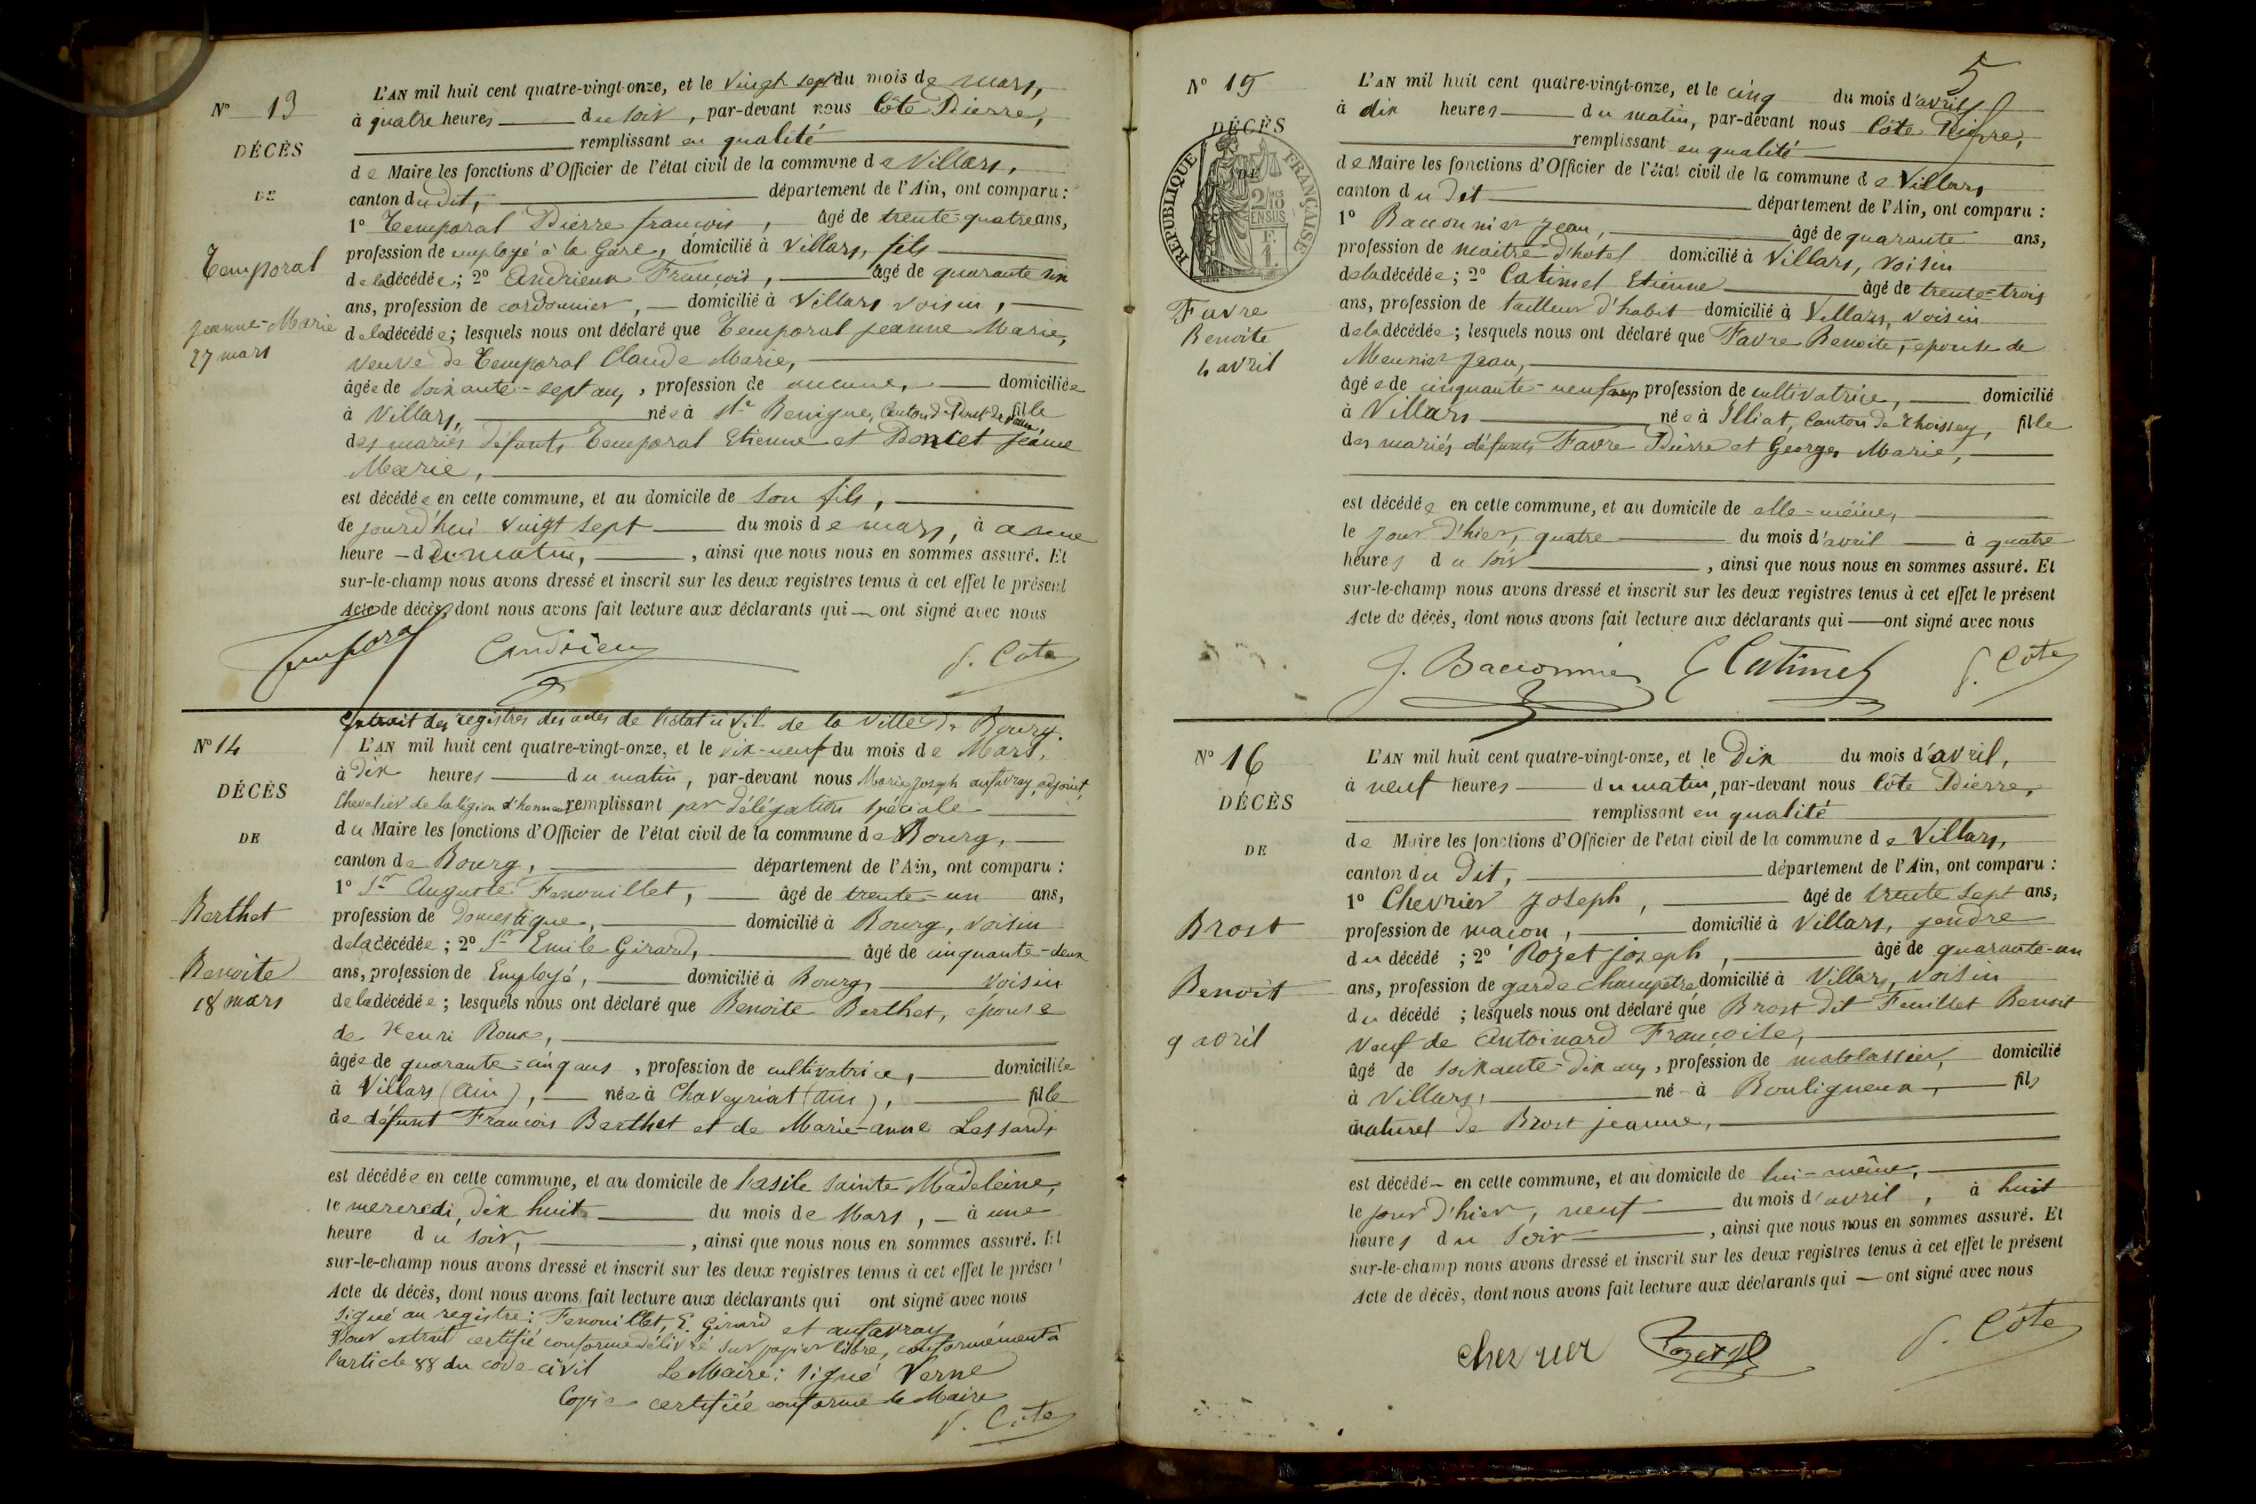 L'AN mil huit cent quatre-vingt-onze, et le vingt sept du mois de mars,
N° 13
à quatre heures du soir, par-devant nous Côte Pierre,
remplissant en qualité
DÉCÈS
de Maire les fonctions d'Officier de l'état civil de la commune de Villars,
canton dudit, département de l'Ain, ont comparu :
DE
1° Temporal Pierre françois, âgé de trente-quatre ans,
profession de employé à la Gare, domicilié à Villars, fils
Temporal
de la décédée ; 2° Andrieux François, âgé de quarante un
ans, profession de cordonnier, domicilié à Villars voisin,
Jeanne-Marie
de la décédée ; lesquels nous ont déclaré que Temporal Jeanne Marie,
27 mars
veuve de Temporal Claude Marie,
âgée de soixante-sept ans, profession de aucune, domiciliée
à Villars, née à Ste Benigne, Canton de Pont-de-Vaux, fille
des mariés défunts Temporal Etienne et Doncet Jeanne
Marie,
est décédée en cette commune, et au domicile de son fils,
le jourd'hui vingt sept du mois de mars, à une
heure du matin, ainsi que nous nous en sommes assuré. Et
sur-le-champ nous avons dressé et inscrit sur les deux registres tenus à cet effet le présent
Acte de décès, dont nous avons fait lecture aux déclarants qui ont signé avec nous
Temporal Andrieux P. Côte
Extrait des registres des actes de l'état civil de la Ville de Bourg.
N° 14
L'AN mil huit cent quatre-vingt-onze, et le dix-neuf du mois de Mars,
à Dix heures du matin, par-devant nous Marie Joseph aufavray, adjoint,
DÉCÈS
Chevalier de la légion d'honneur remplissant par délégation spéciale
du Maire les fonctions d'Officier de l'état civil de la commune de Bourg,
DE
canton de Bourg, département de l'Ain, ont comparu :
1° Sr Auguste Fenouillet, âgé de trente-un ans,
Berthet
profession de Domestique, domicilié à Bourg, voisin
de la décédée ; 2° Sr Emile Girard, âgé de cinquante-deux
Benoite
ans, profession de Employé, domicilié à Bourg, voisin
18 mars
de la décédée ; lesquels nous ont déclaré que Benoite Berthet, épouse
de Henri Roux,
âgée de quarante-cinq ans, profession de cultivatrice, domiciliée
à Villars (Ain), née à Chaveyriat (Ain), fille
de défunt François Berthet et de Marie-anne Lessardi
est décédée en cette commune, et au domicile de l'asile Sainte Madeleine,
le mercredi, dix huit du mois de Mars, à une
heure du soir, ainsi que nous nous en sommes assuré. Et
sur-le-champ nous avons dressé et inscrit sur les deux registres tenus à cet effet le présent
Acte de décès, dont nous avons fait lecture aux déclarants qui ont signé avec nous
Signé au registre : Fenouillet, E. Girard et aufavray
Pour extrait certifié conforme délivré sur papier libre, conformément à
l'article 88 du code civil Le Maire : signé Verne
Copie certifiée conforme le Maire
P. Côte
5
N° 15
L'AN mil huit cent quatre-vingt-onze, et le cinq du mois d'avril
à dix heures du matin, par-devant nous Côte Pierre,
DÉCÈS
remplissant en qualité
de Maire les fonctions d'Officier de l'état civil de la commune de Villars
DE
REPUBLIQUE FRANÇAISE
2/10 EN SUS
canton du Dit département de l'Ain, ont comparu :
1° Bacconnier Jean, âgé de quarante ans,
profession de maitre d'hotel domicilié à Villars, voisin
de la décédée ; 2° Catimel Etienne âgé de trente-trois
Favre
ans, profession de tailleur d'habit domicilié à Villars, voisin
Benoite
de la décédée ; lesquels nous ont déclaré que Favre Benoite, épouse de
4 avril
Meunier Jean,
âgée de cinquante-neuf ans profession de cultivatrice, domicilié
à Villars née à Illiat, Canton de Thoissey, fille
des mariés défunts Favre Pierre et Georges Marie,
est décédée en cette commune, et au domicile de elle-même,
le jour d'hier, quatre du mois d'avril à quatre
heures du soir, ainsi que nous nous en sommes assuré. Et
sur-le-champ nous avons dressé et inscrit sur les deux registres tenus à cet effet le présent
Acte de décès, dont nous avons fait lecture aux déclarants qui ont signé avec nous
J. Bacconnier E Catimel P. Côte
N° 16
L'AN mil huit cent quatre-vingt-onze, et le Dix du mois d'avril,
à neuf heures du matin, par-devant nous Côte Pierre,
DÉCÈS
remplissant en qualité
de Maire les fonctions d'Officier de l'état civil de la commune de Villars,
DE
canton du Dit, département de l'Ain, ont comparu :
1° Chevrier Joseph, âgé de trente sept ans,
Brost
profession de maçon, domicilié à Villars, gendre
du décédé ; 2° Rozet Joseph, âgé de quarante-un
Benoit
ans, profession de garde champêtre domicilié à Villars, voisin
du décédé ; lesquels nous ont déclaré que Brost dit Feuillet Benoit
9 avril
veuf de Antoinard Françoise,
âgé de soixante-dix ans, profession de matelassier, domicilié
à Villars, né à Bouligneux, fils
naturel de Brost Jeanne,
est décédé en cette commune, et au domicile de lui-même,
le jour d'hier, neuf du mois d'avril, à huit
heures du Soir, ainsi que nous nous en sommes assuré. Et
sur-le-champ nous avons dressé et inscrit sur les deux registres tenus à cet effet le présent
Acte de décès, dont nous avons fait lecture aux déclarants qui ont signé avec nous
chevrier Rozet P. Côte